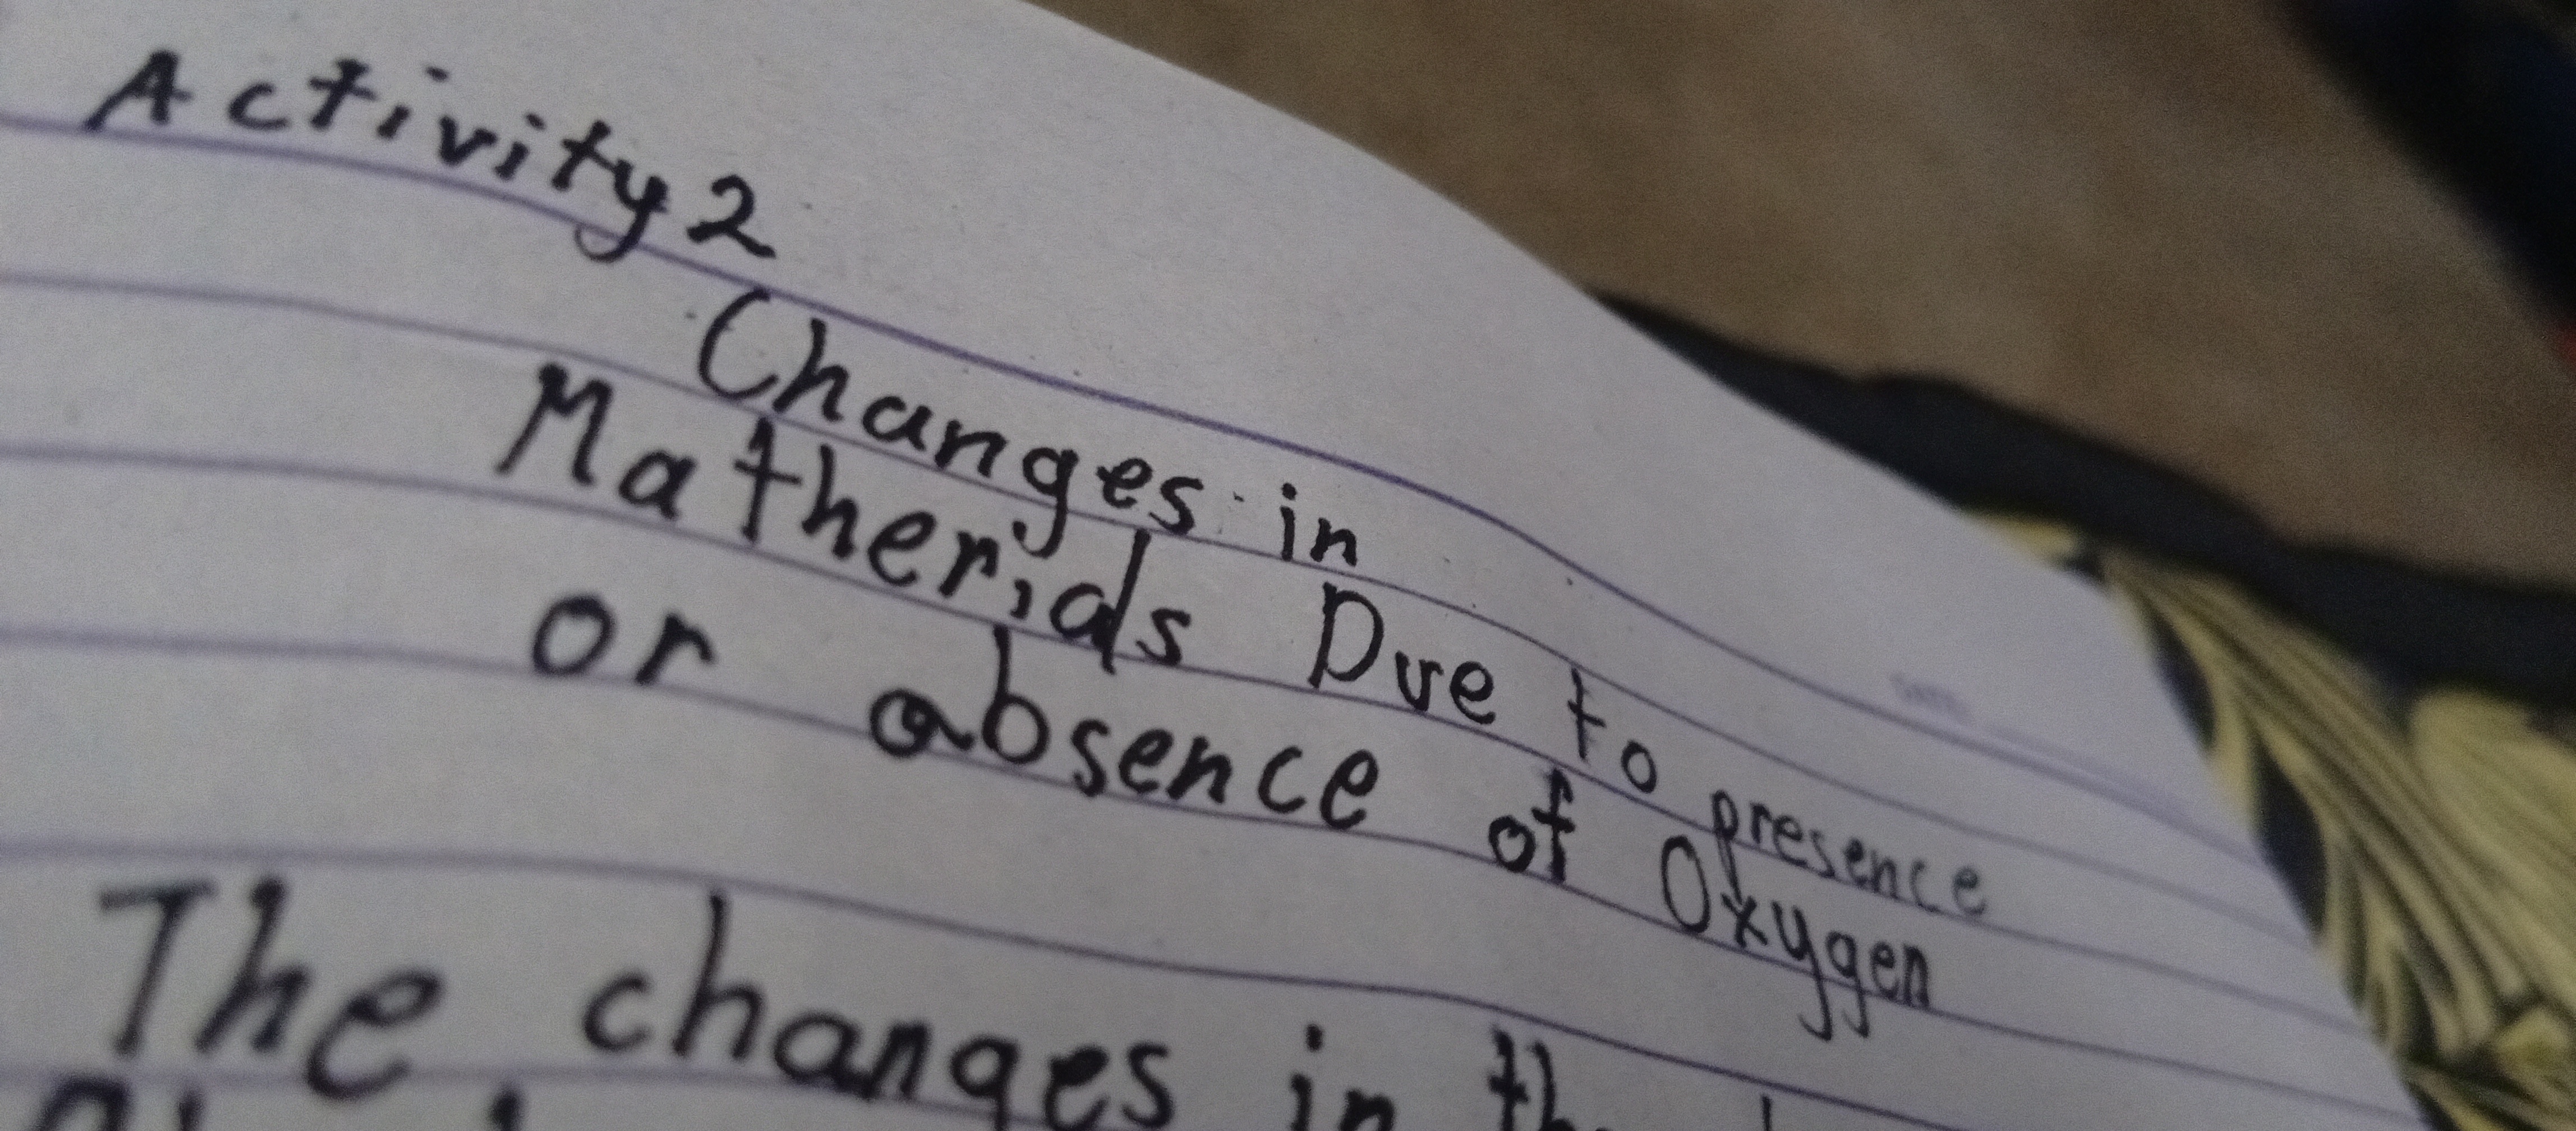 Activity 2
Changes in
Matherials Due to presence
or absence of Oxygen
The changes in